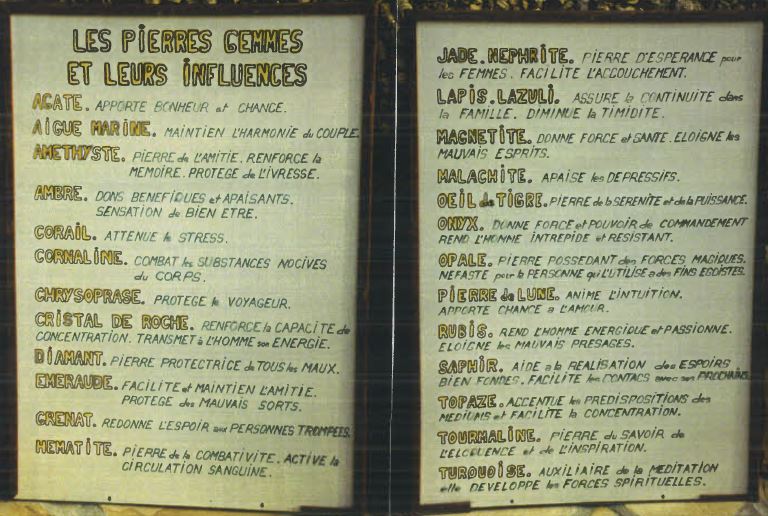 LES PIERRES GEMMES
ET LEURS INFLUENCES
AGATE. APPORTE BONHEUR et CHANCE.
AIGUE MARINE. MAINTIEN L'HARMONIE du COUPLE.
AMETHYSTE. PIERRE de L'AMITIE. RENFORCE la
MEMOIRE. PROTEGE de L'IVRESSE.
AMBRE. DONS BENEFIQUES et APAISANTS.
SENSATION de BIEN ETRE.
CORAIL. ATTENUE le STRESS.
CORNALINE. COMBAT les SUBSTANCES NOCIVES
du CORPS.
CHRYSOPRASE. PROTEGE le VOYAGEUR.
CRISTAL DE ROCHE. RENFORCE la CAPACITE de
CONCENTRATION. TRANSMET à L'HOMME son ENERGIE.
DIAMANT. PIERRE PROTECTRICE de TOUS les MAUX.
EMERAUDE. FACILITE et MAINTIEN L'AMITIE.
PROTEGE des MAUVAIS SORTS.
GRENAT. REDONNE L'ESPOIR aux PERSONNES TROMPEES.
HEMATITE. PIERRE de la COMBATIVITE. ACTIVE la
CIRCULATION SANGUINE.
JADE. NEPHRITE. PIERRE D'ESPERANCE pour
les FEMMES. FACILITE L'ACCOUCHEMENT.
LAPIS. LAZULI. ASSURE la CONTINUITE dans
la FAMILLE. DIMINUE la TIMIDITE.
MAGNETITE. DONNE FORCE et SANTE. ELOIGNE les
MAUVAIS ESPRITS.
MALACHITE. APAISE les DEPRESSIFS.
OEIL de TIGRE. PIERRE de la SERENITE et de la PUISSANCE.
ONYX. DONNE FORCE et POUVOIR de COMMANDEMENT
REND L'HOMME INTREPIDE et RESISTANT.
OPALE. PIERRE POSSEDANT des FORCES MAGIQUES.
NEFASTE pour la PERSONNE qui L'UTILISE a des FINS EGOISTES.
PIERRE de LUNE. ANIME L'INTUITION.
APPORTE CHANCE a L'AMOUR.
RUBIS. REND L'HOMME ENERGIQUE et PASSIONNE.
ELOIGNE les MAUVAIS PRESAGES.
SAPHIR. AIDE a la REALISATION des ESPOIRS
BIEN FONDES. FACILITE les CONTACS avec son PROCHAIN.
TOPAZE. ACCENTUE les PREDISPOSITIONS des
MEDIUMS et FACILITE la CONCENTRATION.
TOURMALINE. PIERRE du SAVOIR de
L'ELOQUENCE et de L'INSPIRATION.
TURQUOISE. AUXILIAIRE de la MEDITATION
elle DEVELOPPE les FORCES SPIRITUELLES.